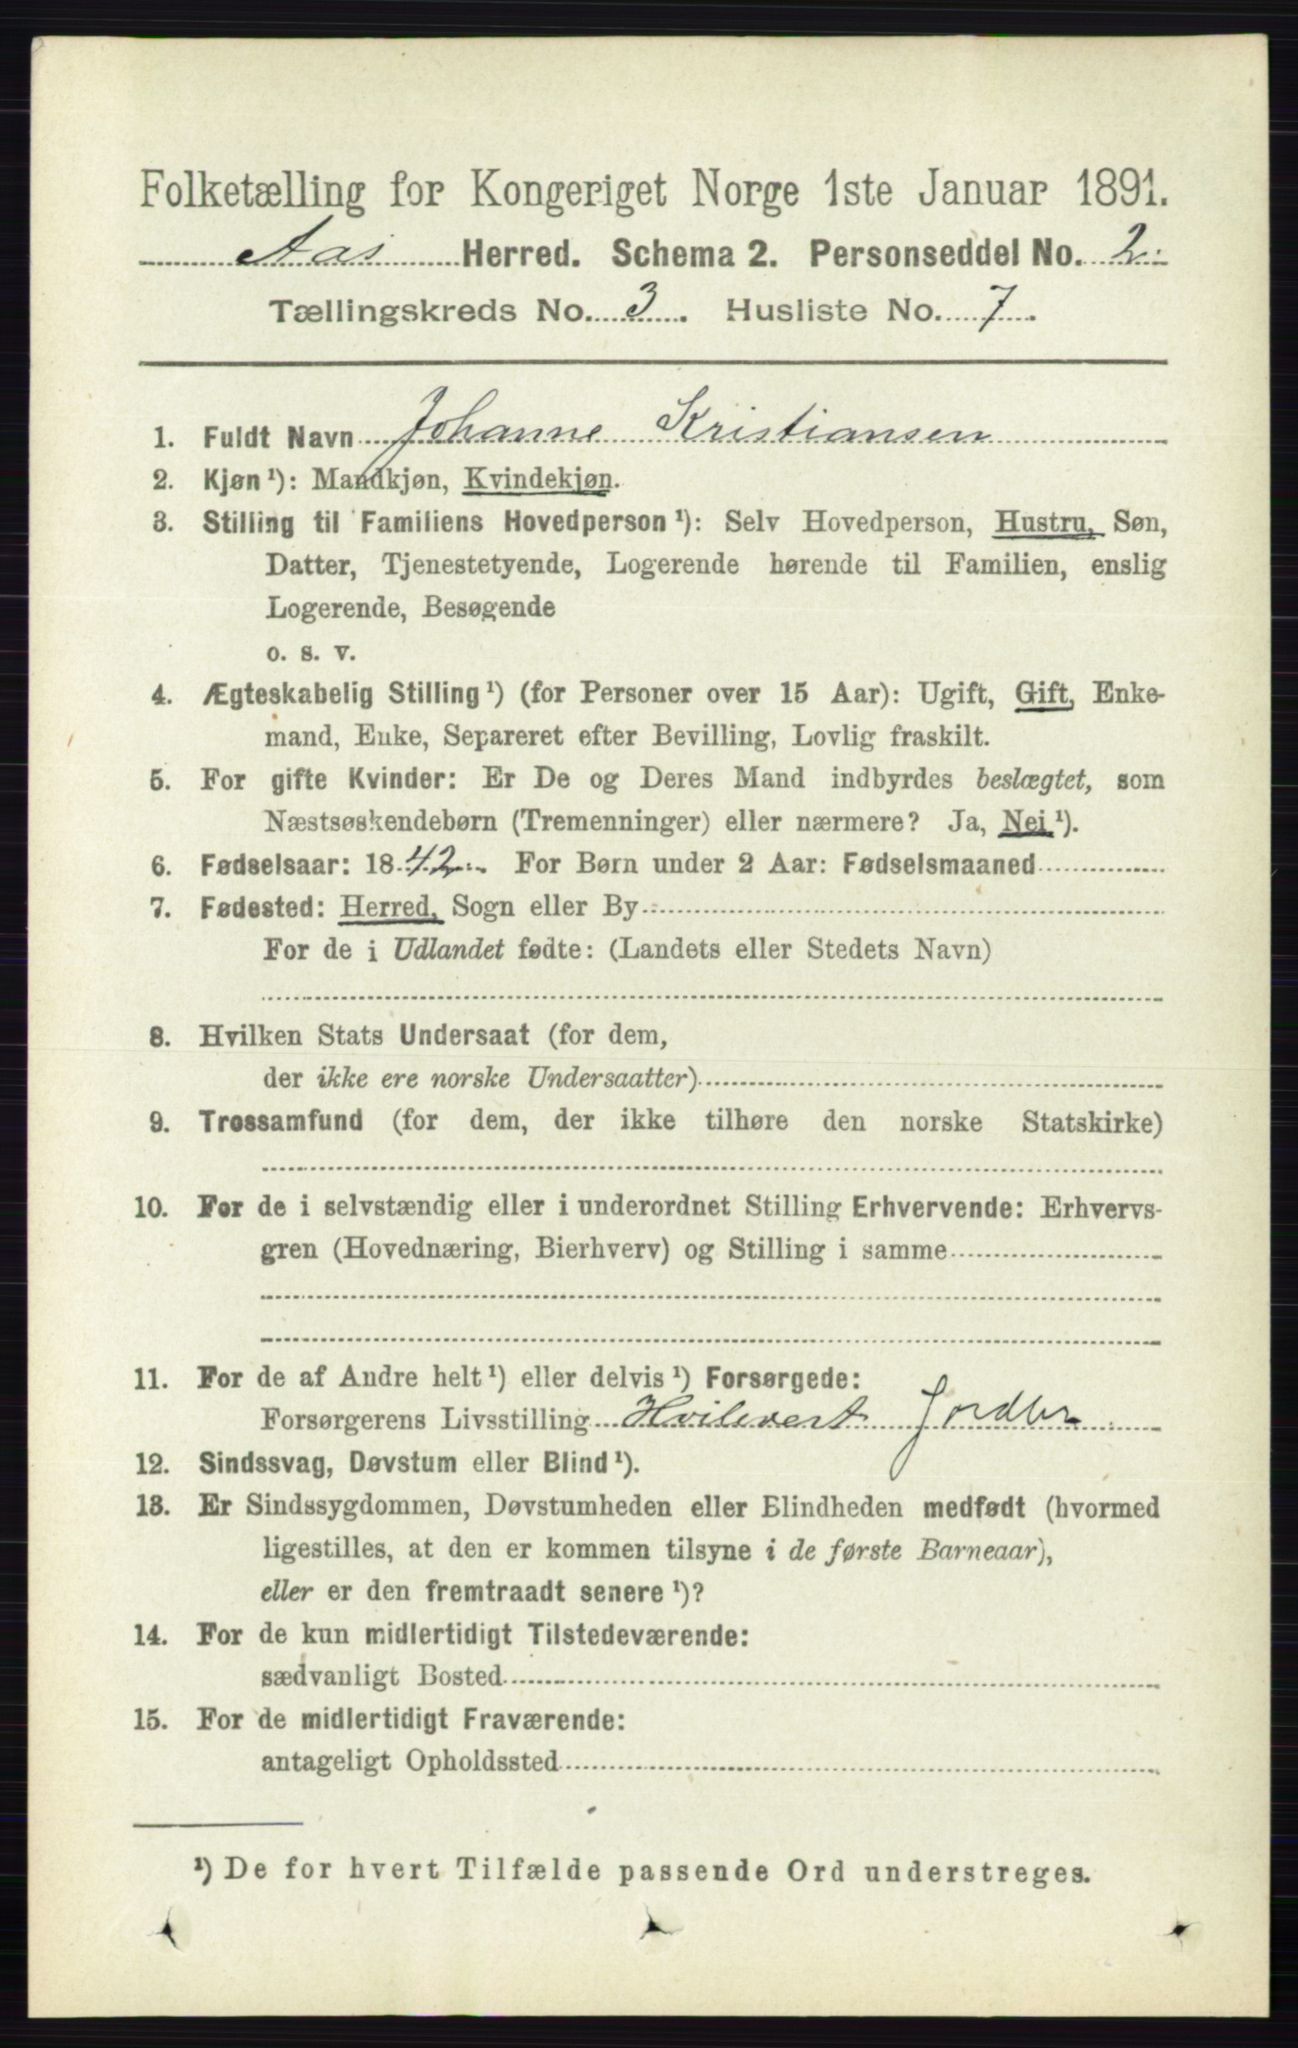 Folketælling for Kongeriget Norge 1ste Januar 1891.
Aas Herred. Schema 2. Personseddel No. 2.
Tællingskreds No. 3. Husliste No. 7.
1. Fuldt Navn Johanne Kristiansen
2. Kjøn¹): Mandkjøn, Kvindekjøn.
3. Stilling til Familiens Hovedperson¹): Selv Hovedperson, Hustru, Søn,
Datter, Tjenestetyende, Logerende hørende til Familien, enslig
Logerende, Besøgende
o. s. v.
4. Ægteskabelig Stilling¹) (for Personer over 15 Aar): Ugift, Gift, Enke-
mand, Enke, Separeret efter Bevilling, Lovlig fraskilt.
5. For gifte Kvinder: Er De og Deres Mand indbyrdes beslægtet, som
Næstsøskendebørn (Tremenninger) eller nærmere? Ja, Nei¹).
6. Fødselsaar: 1842. For Børn under 2 Aar: Fødselsmaaned
7. Fødested: Herred, Sogn eller By
For de i Udlandet fødte: (Landets eller Stedets Navn)
8. Hvilken Stats Undersaat (for dem,
der ikke ere norske Undersaatter)
9. Trossamfund (for dem, der ikke tilhøre den norske Statskirke)
10. For de i selvstændig eller i underordnet Stilling Erhvervende: Erhvervs-
gren (Hovednæring, Bierhverv) og Stilling i samme
11. For de af Andre helt¹) eller delvis¹) Forsørgede:
Forsørgerens Livsstilling Jordbr.
12. Sindssvag, Døvstum eller Blind¹).
13. Er Sindssygdommen, Døvstumheden eller Blindheden medfødt (hvormed
ligestilles, at den er kommen tilsyne i de første Barneaar),
eller er den fremtraadt senere¹)?
14. For de kun midlertidigt Tilstedeværende:
sædvanligt Bosted
15. For de midlertidigt Fraværende:
antageligt Opholdssted
¹) De for hvert Tilfælde passende Ord understreges.